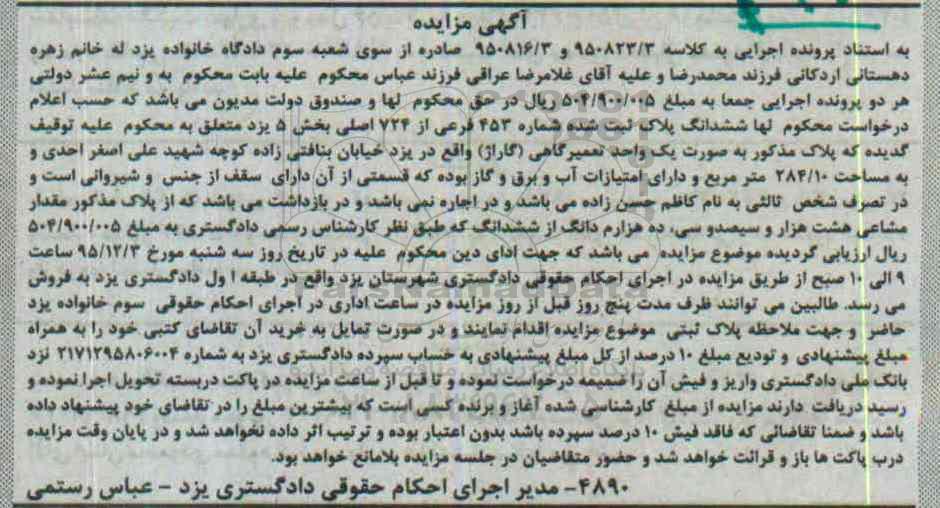 آگهی مزایده
به استناد پرونده اجرایی به کلاسه ۹۵۰۸۲۳/۳ و ۹۵۰۸۱۶/۳ صادره از سوی شعبه سوم دادگاه خانواده یزد له خانم زهره
دهستانی اردکانی فرزند محمدرضا و علیه آقای غلامرضا عراقی فرزند عباس محکوم علیه بابت محکوم به و نیم عشر دولتی
هر دو پرونده اجرایی جمعا به مبلغ ۵۰۴/۹۰۰/۰۰۵ ریال در حق محکوم لها و صندوق دولت مدیون می باشد که حسب اعلام
درخواست محکوم لها ششدانگ پلاک ثبت شده شماره ۴۵۳ فرعی از ۷۲۴ اصلی بخش ۵ یزد متعلق به محکوم علیه توقیف
گدیده که پلاک مذکور به صورت یک واحد تعمیرگاهی (گاراژ) واقع در یزد خیابان بنافتی زاده کوچه شهید علی اصغر احدی و
به مساحت ۲۸۴/۱۰ متر مربع و دارای امتیازات آب و برق و گاز بوده که قسمتی از آن دارای سقف از جنس و شیروانی است و
در تصرف شخص ثالثی به نام کاظم حسن زاده می باشد و در اجاره نمی باشد و در بازداشت می باشد که از پلاک مذکور مقدار
مشاعی هشت هزار و سیصدو سی، ده هزارم دانگ از ششدانگ که طبق نظر کارشناس رسمی دادگستری به مبلغ ۵۰۴/۹۰۰/۰۰۵
ریال ارزیابی گردیده موضوع مزایده می باشد که جهت ادای دین محکوم علیه در تاریخ روز سه شنبه مورخ ۹۵/۱۲/۳ ساعت
۹ الی ۱۰ صبح از طریق مزایده در اجرای احکام حقوقی دادگستری شهرستان یزد واقع در طبقه ا ول دادگستری یزد به فروش
می رسد. طالبین می توانند ظرف مدت پنج روز قبل از روز مزایده در ساعت اداری در اجرای احکام حقوقی سوم خانواده یزد
حاضر و جهت ملاحظه پلاک ثبتی موضوع مزایده اقدام نمایند و در صورت تمایل به خرید آن تقاضای کتبی خود را به همراه
مبلغ پیشنهادی و تودیع مبلغ ۱۰ درصد از کل مبلغ پیشنهادی به حساب سپرده دادگستری یزد به شماره ۲۱۷۱۲۹۵۸۰۶۰۰۴ نزد
بانک ملی دادگستری واریز و فیش آن را ضمیمه درخواست نموده و تا قبل از ساعت مزایده در پاکت دربسته تحویل اجرا نموده و
رسید دریافت دارند مزایده از مبلغ کارشناسی شده آغاز و برنده کسی است که بیشترین مبلغ را در تقاضای خود پیشنهاد داده
باشد و ضمنا تقاضائی که فاقد فیش ۱۰ درصد سپرده باشد بدون اعتبار بوده و ترتیب اثر داده نخواهد شد و در پایان وقت مزایده
درب پاکت ها باز و قرائت خواهد شد و حضور متقاضیان در جلسه مزایده بلامانع خواهد بود.
۴۸۹۰- مدیر اجرای احکام حقوقی دادگستری یزد - عباس رستمی